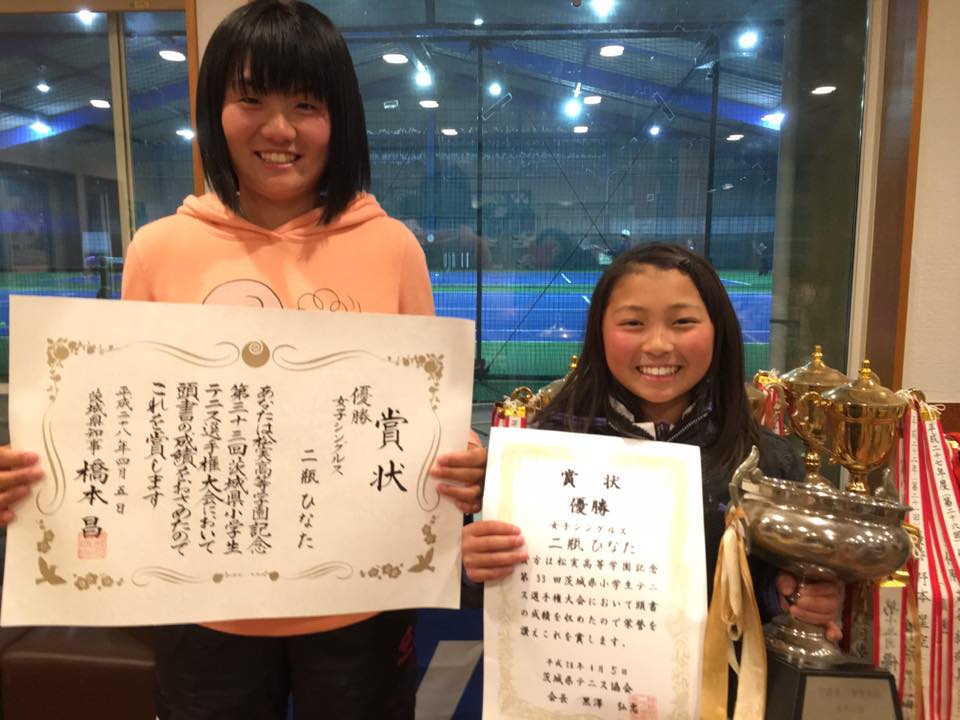 賞状
優勝
女子シングルス
二瓶 ひなた
あなたは松実高等学園記念
第三十三回茨城県小学生
テニス選手権大会において
頭書の成績をおさめたので
これを賞します
平成二八年四月五日
茨城県知事 橋本 昌
賞 状
優勝
女子シングルス
二瓶 ひなた
貴方は松実高等学園記念
第 33 回茨城県小学生テニ
ス選手権大会において頭書
の成績を収めたので栄誉を
讃えこれを賞します。
平成 28 年 4 月 5 日
茨城県テニス協会
会長 黒澤 弘忠
平成二十七年度